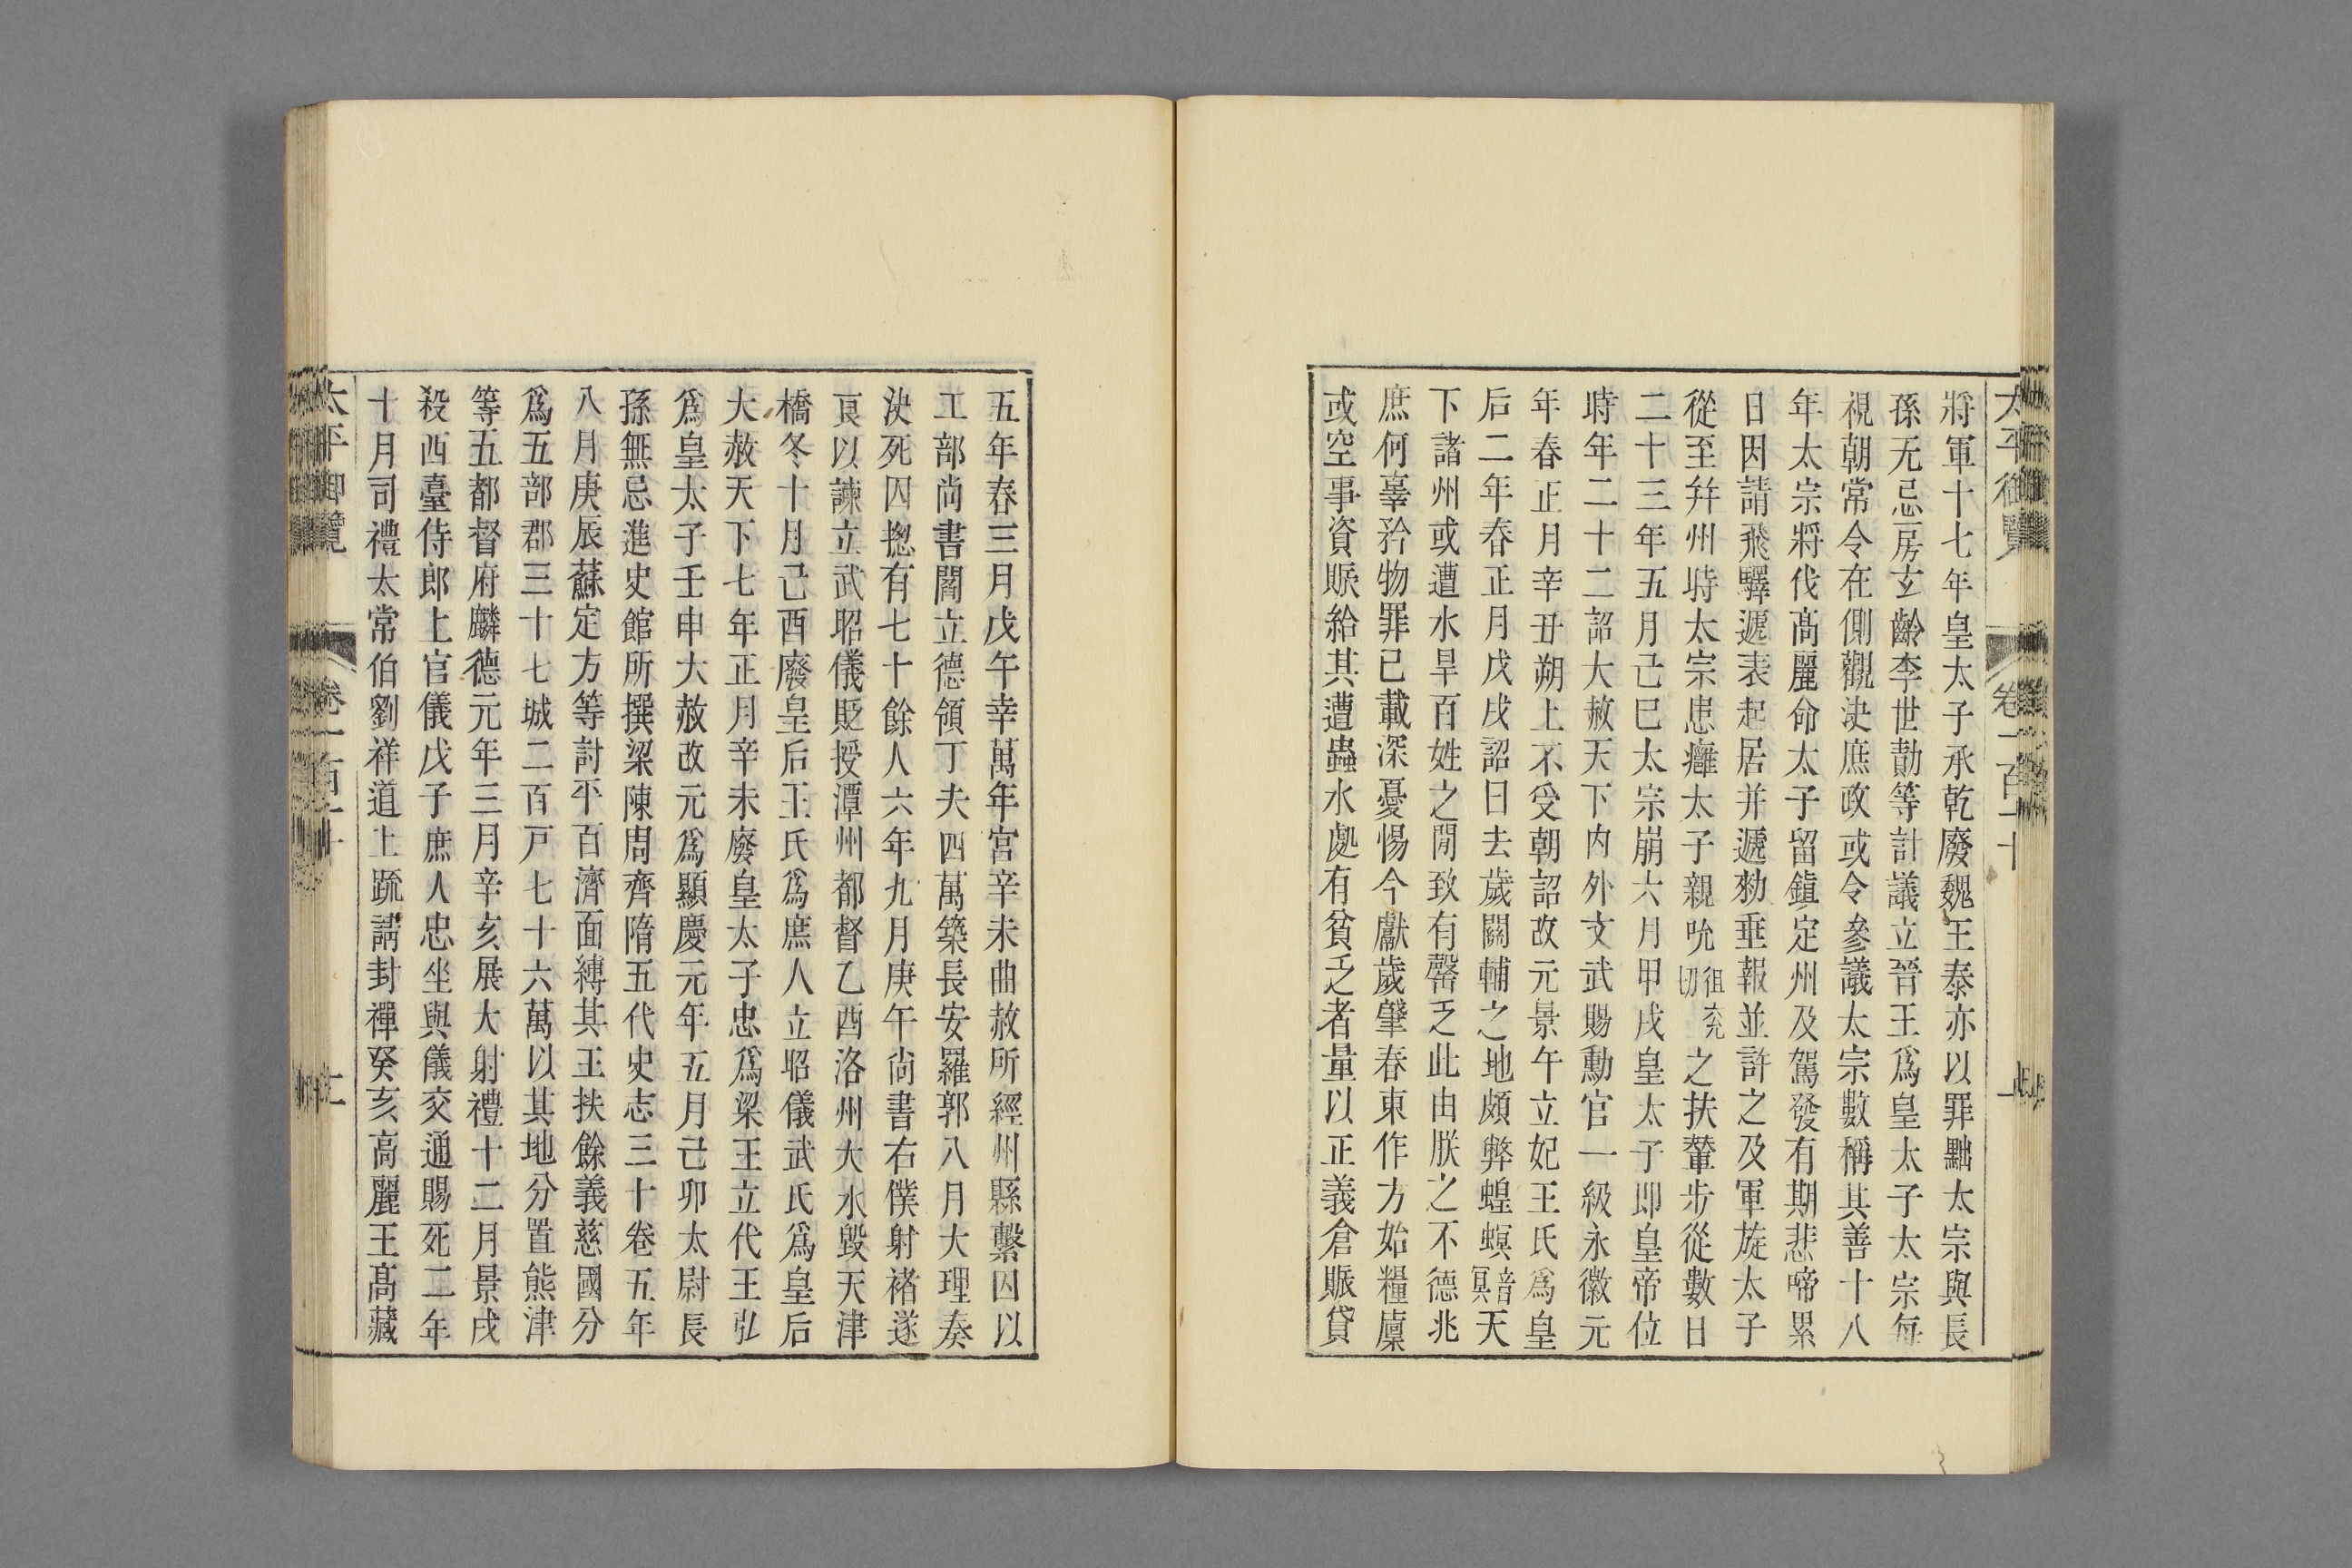 將軍十七年皇太子承乾廢魏王泰亦以罪黜太宗與長
孫无忌房玄齡李世勣等計議立晉王爲皇太子太宗每
視朝常令在側觀決庶政或令參議太宗數稱其善十八
年太宗將伐髙麗命太子留鎭定州及駕發有期悲啼累
日因請飛驛遞表起居并遞勑垂報並許之及軍旋太子
從至幷州時太宗患癰太子親吮徂兖切之扶輦步從數日
二十三年五月己巳太宗崩六月甲戌皇太子即皇帝位
時年二十二詔大赦天下内外文武賜勳官一級永徽元
年春正月辛丑朔上不受朝詔改元景午立妃王氏爲皇
后二年春正月戊戌詔曰去歲關輔之地頗弊蝗螟音冥天
下諸州或遭水旱百姓之閒致有罄乏此由朕之不德兆
庶何辜矜物罪已載深憂惕今獻歲肇春東作方始糧廩
或空事資賑給其遭蟲水處有貧乏者量以正義倉賑貸
五年春三月戊午幸萬年宮辛未曲赦所經州縣繫囚以
工部尚書閻立德領丁夫四萬築長安羅郭八月大理奏
決死囚揔有七十餘人六年九月庚午尚書右僕射褚遂
良以諫立武昭儀貶授潭州都督乙酉洛州大水毀天津
橋冬十月己酉廢皇后王氏爲庶人立昭儀武氏爲皇后
大赦天下七年正月辛未廢皇太子忠爲梁王立代王弘
爲皇太子壬申大赦改元爲顯慶元年五月己卯太尉長
孫無忌進史館所撰梁陳周齊隋五代史志三十卷五年
八月庚辰蘇定方等討平百濟面縛其王扶餘義慈國分
爲五部郡三十七城二百戸七十六萬以其地分置熊津
等五都督府麟德元年三月辛亥展大射禮十二月景戌
殺西臺侍郎上官儀戊子庶人忠坐與儀交通賜死二年
十月司禮太常伯劉祥道上䟽請封禪癸亥高麗王髙藏
太平御覽 卷一百一十